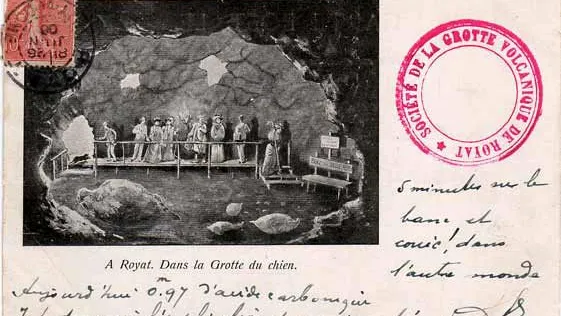 SOCIÉTÉ DE LA GROTTE VOLCANIQUE DE ROYAT
A Royat. Dans la Grotte du chien.
5 minutes sur le
banc et
couic! dans
l'autre monde
Aujourd'hui 0m.97 d'acide carbonique